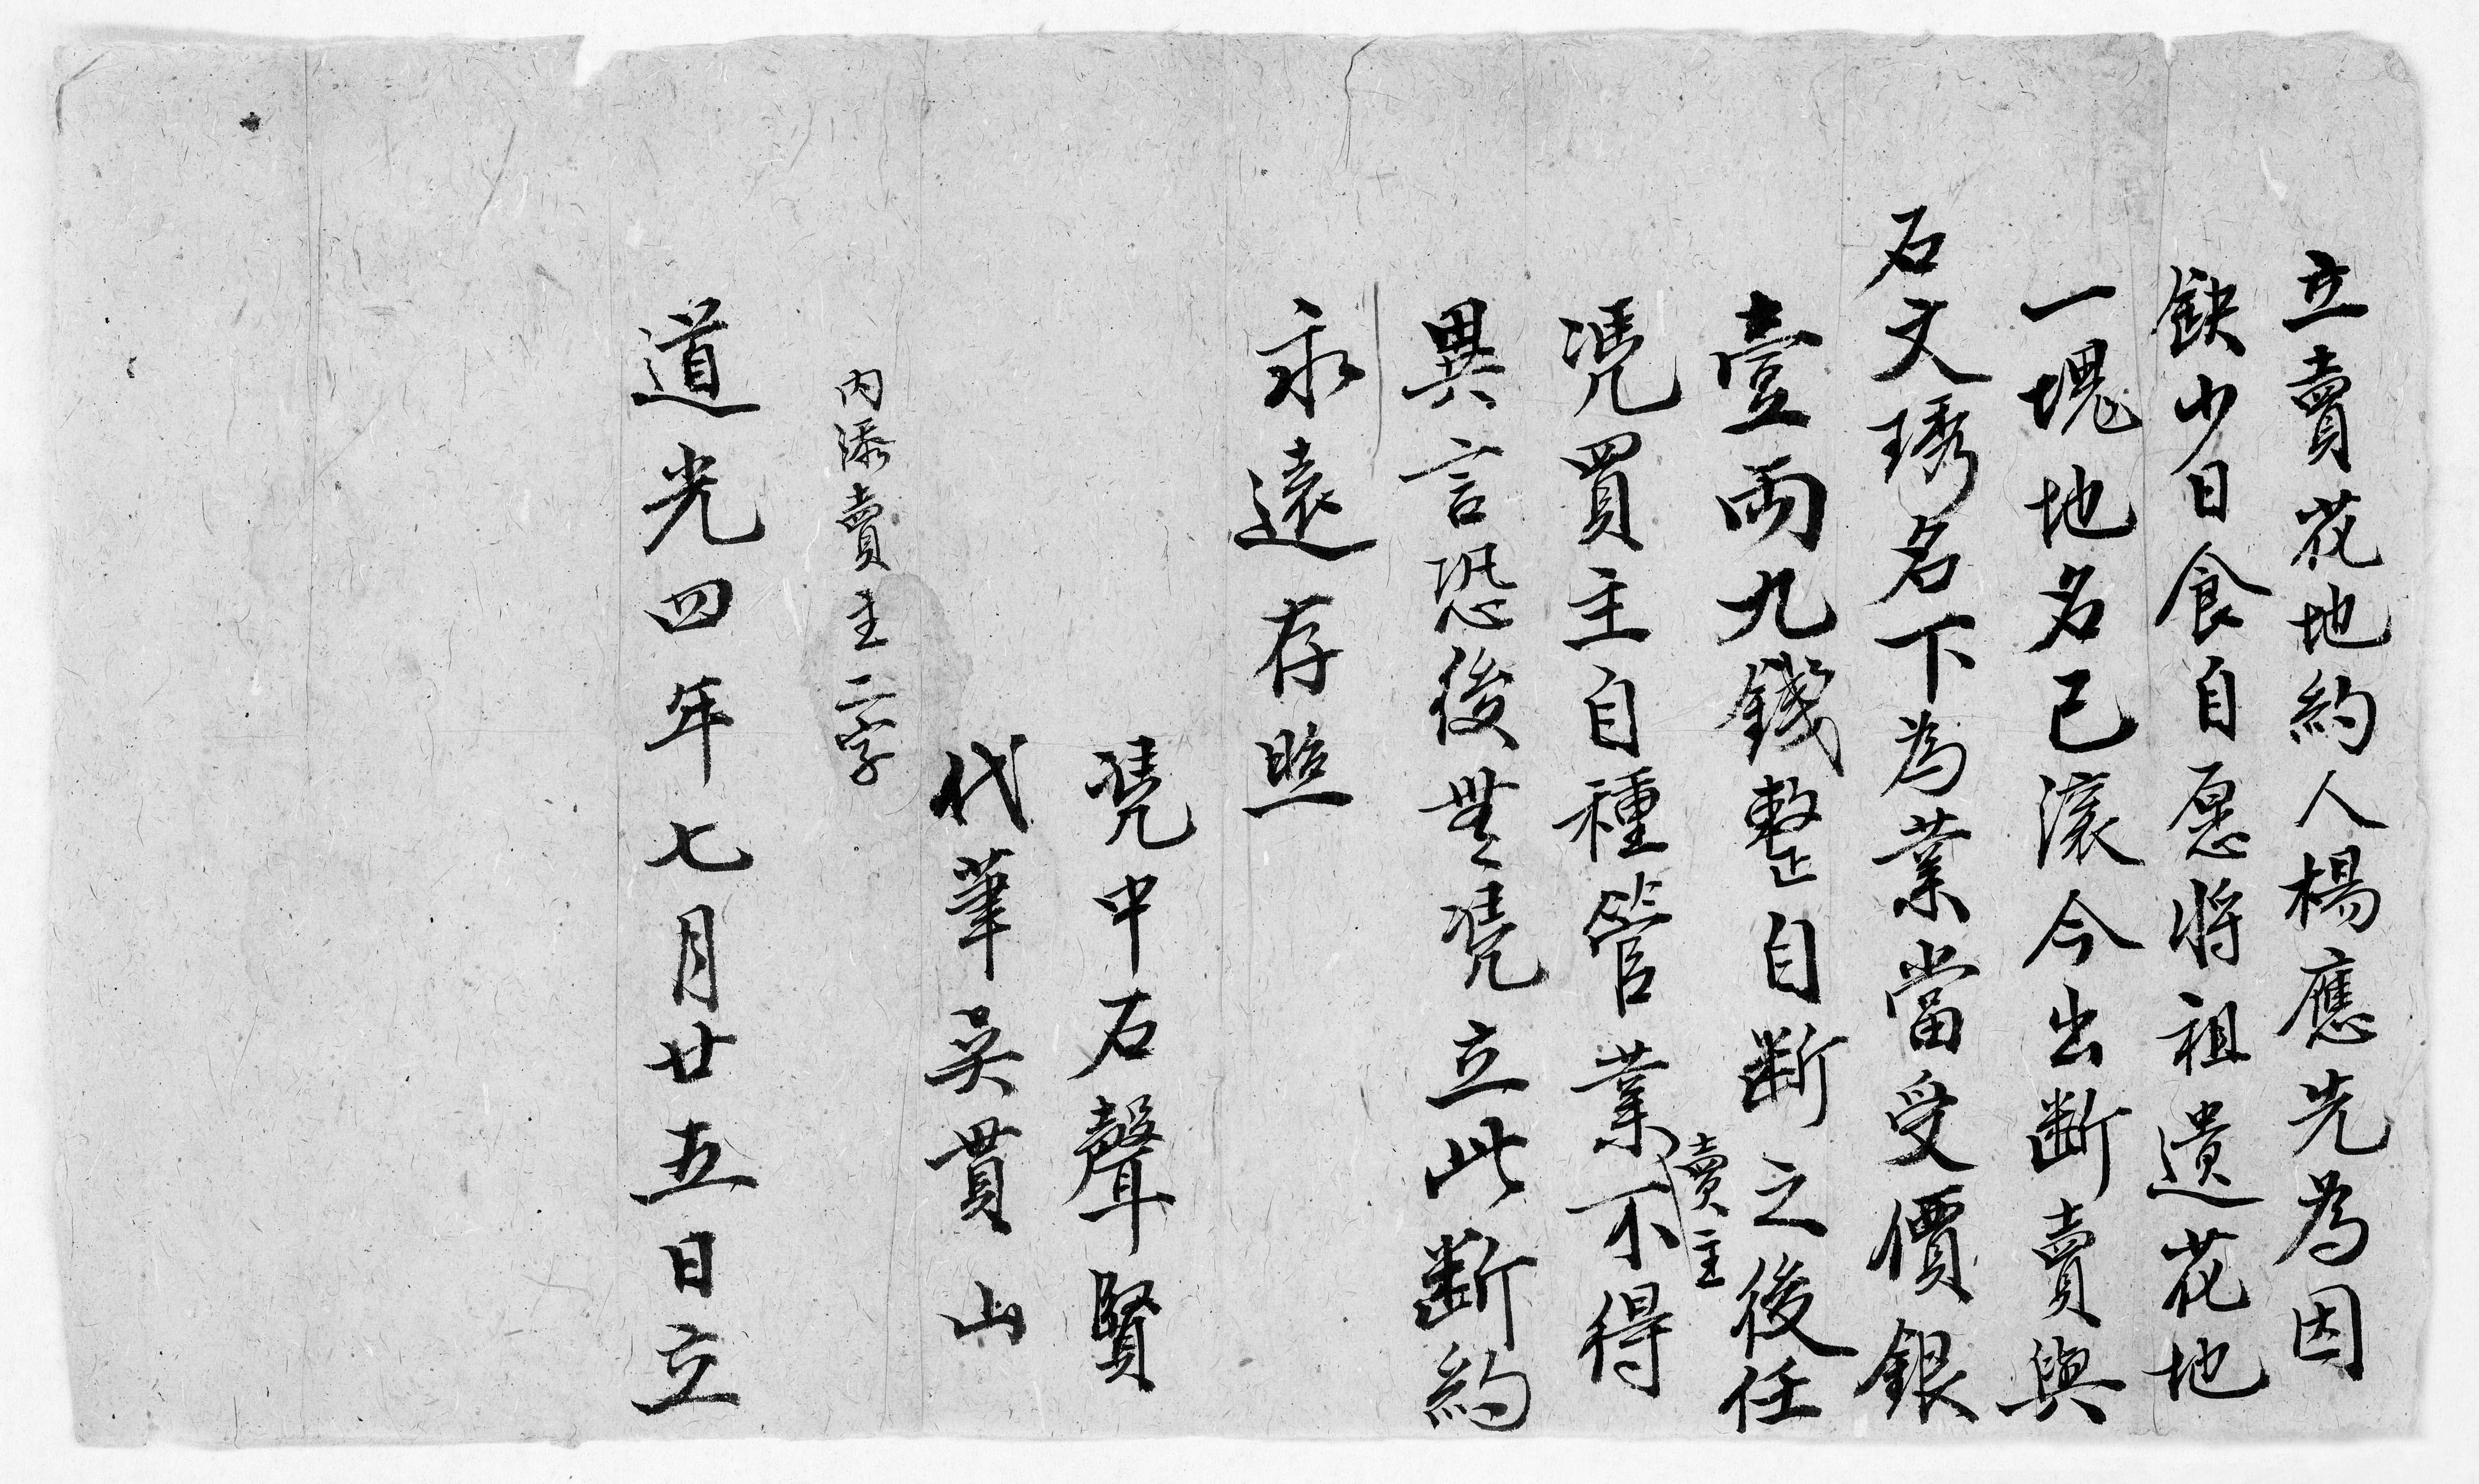 立賣花地約人楊應先為因
缺少日食自愿將祖遺花地
一塊地名己滾今出断賣與
石文琇名下為業當受價銀
壹両九錢整自断之後任
凴買主自種管業賣主不得
異言恐後無凴立此断約
永遠存照
凴中石聲賢
代筆吴貫山
内添賣主二字
道光四年七月廿五日立